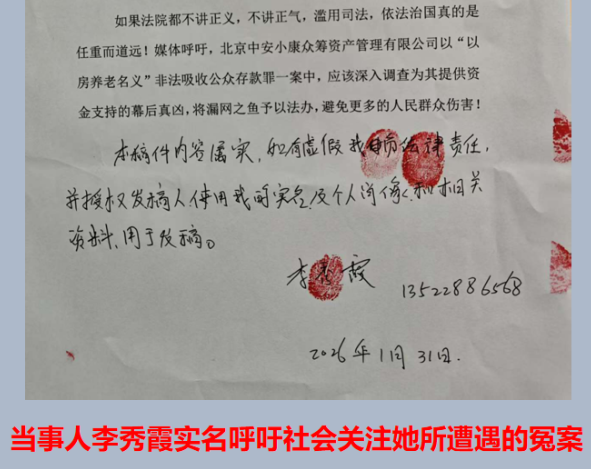 如果法院都不讲正义，不讲正气，滥用司法，依法治国真的是
任重而道远！媒体呼吁，北京中安小康众筹资产管理有限公司以“以
房养老名义”非法吸收公众存款罪一案中，应该深入调查为其提供资
金支持的幕后真凶，将漏网之鱼予以法办，避免更多的人民群众伤害！
本稿件内容属实，如有虚假我自负法律责任，
并授权发稿人使用我的实名及个人肖像、和相关
资料、用于发稿。
李秀霞 13522886568
2026年1月31日.
当事人李秀霞实名呼吁社会关注她所遭遇的冤案